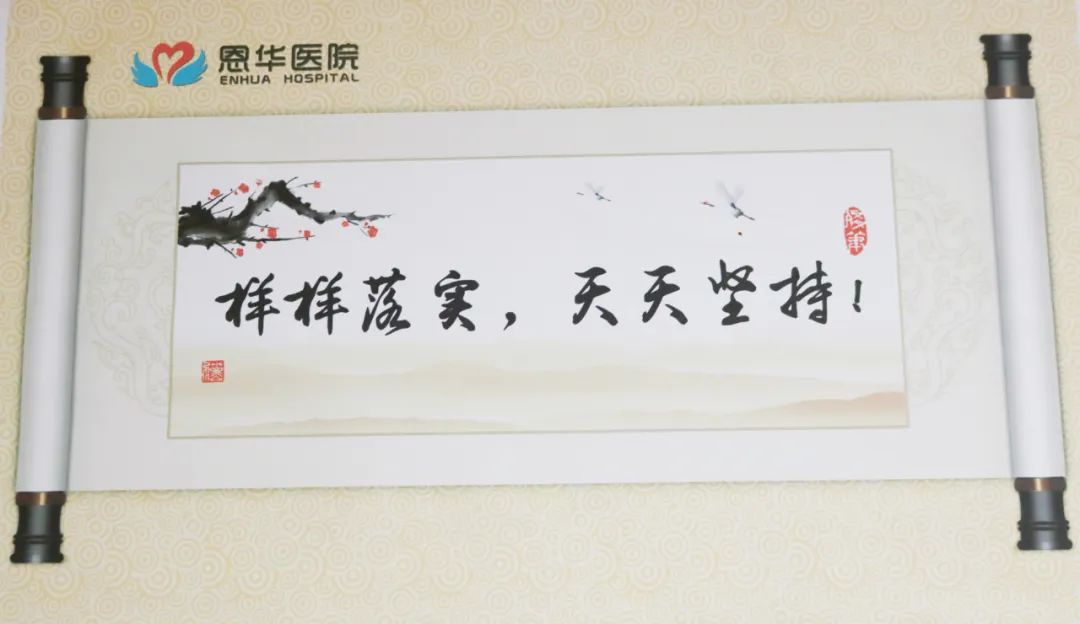 恩华医院
ENHUA HOSPITAL
样样落实，天天坚持！